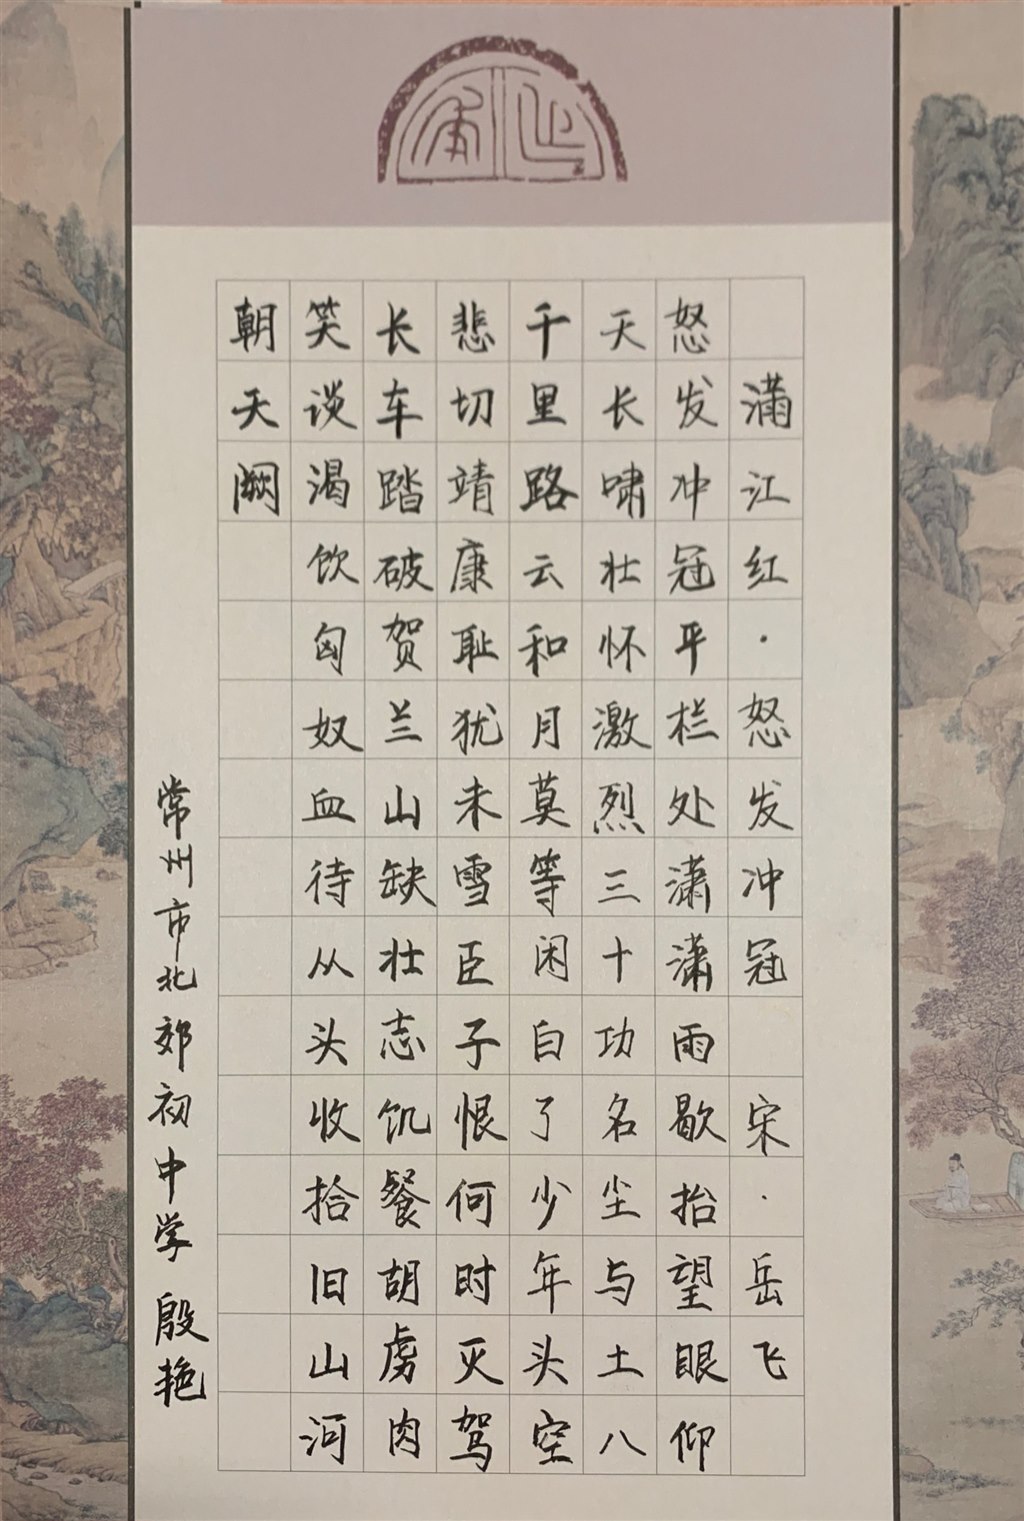 满江红·怒发冲冠 宋·岳飞
怒发冲冠平栏处潇潇雨歇抬望眼仰
天长啸壮怀激烈三十功名尘与土八
千里路云和月莫等闲白了少年头空
悲切靖康耻犹未雪臣子恨何时灭驾
长车踏破贺兰山缺壮志饥餐胡虏肉
笑谈渴饮匈奴血待从头收拾旧山河
朝天阙
常州市北郊初中学 殷艳